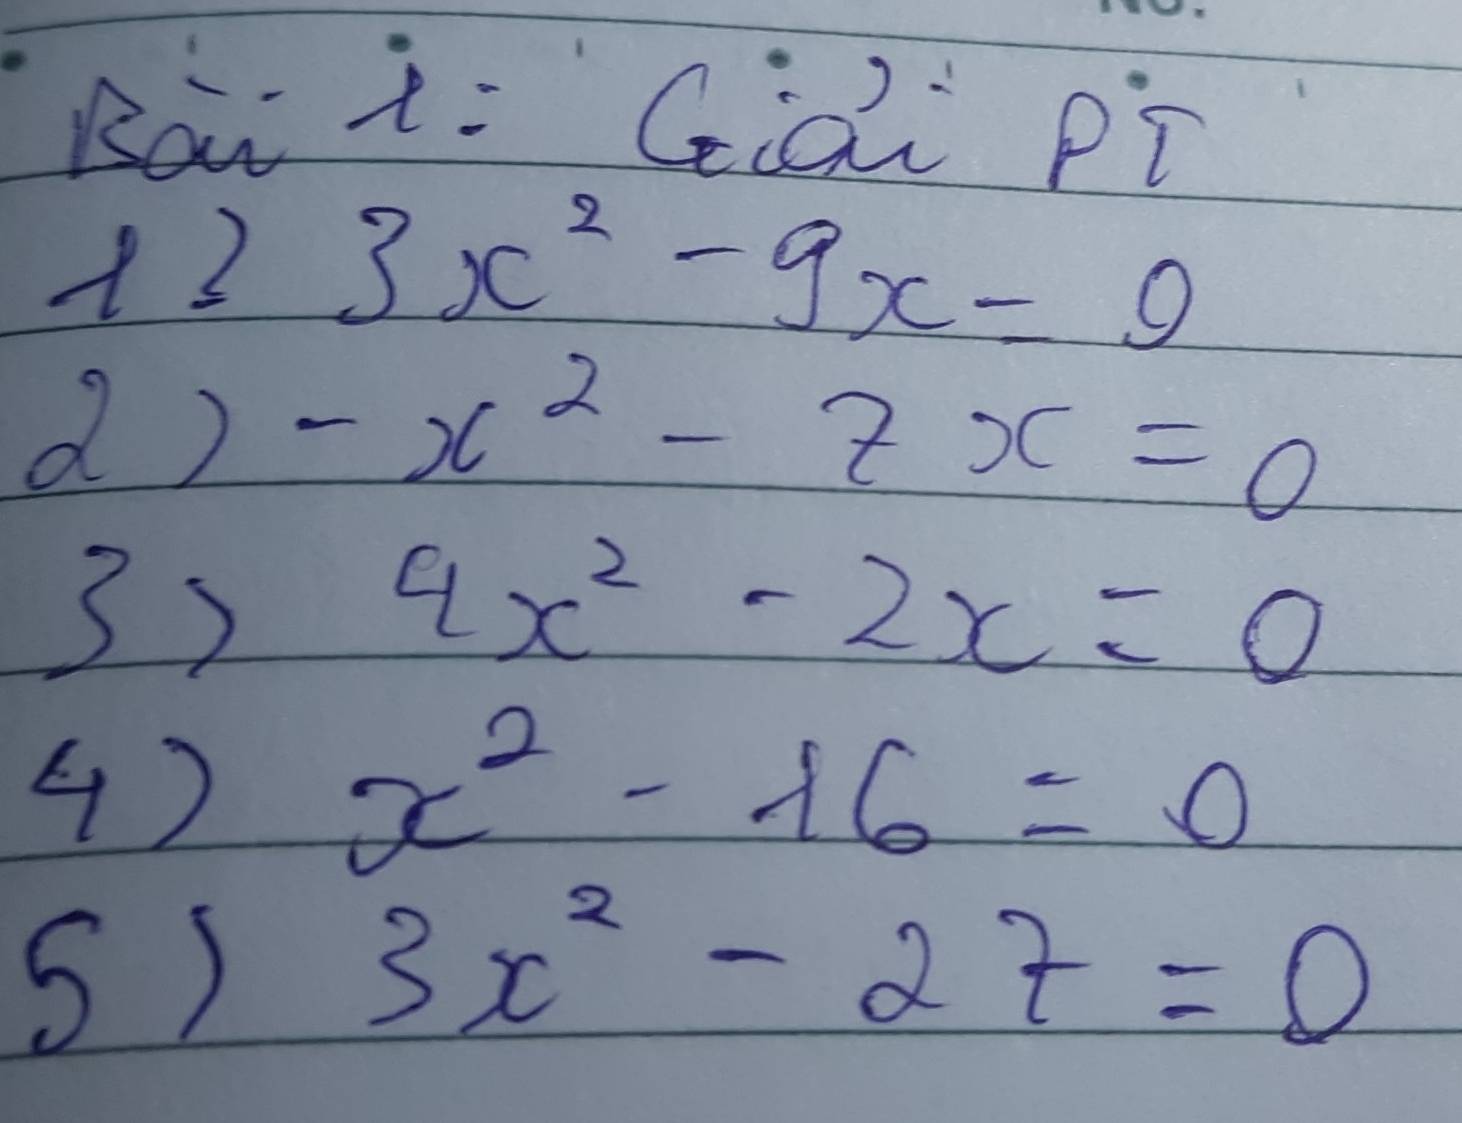 No.
Bài 1: Giải PT
1) 3x² - 9x = 0
2) - x² - 7x = 0
3) 4x² - 2x = 0
4) x² - 16 = 0
5) 3x² - 27 = 0